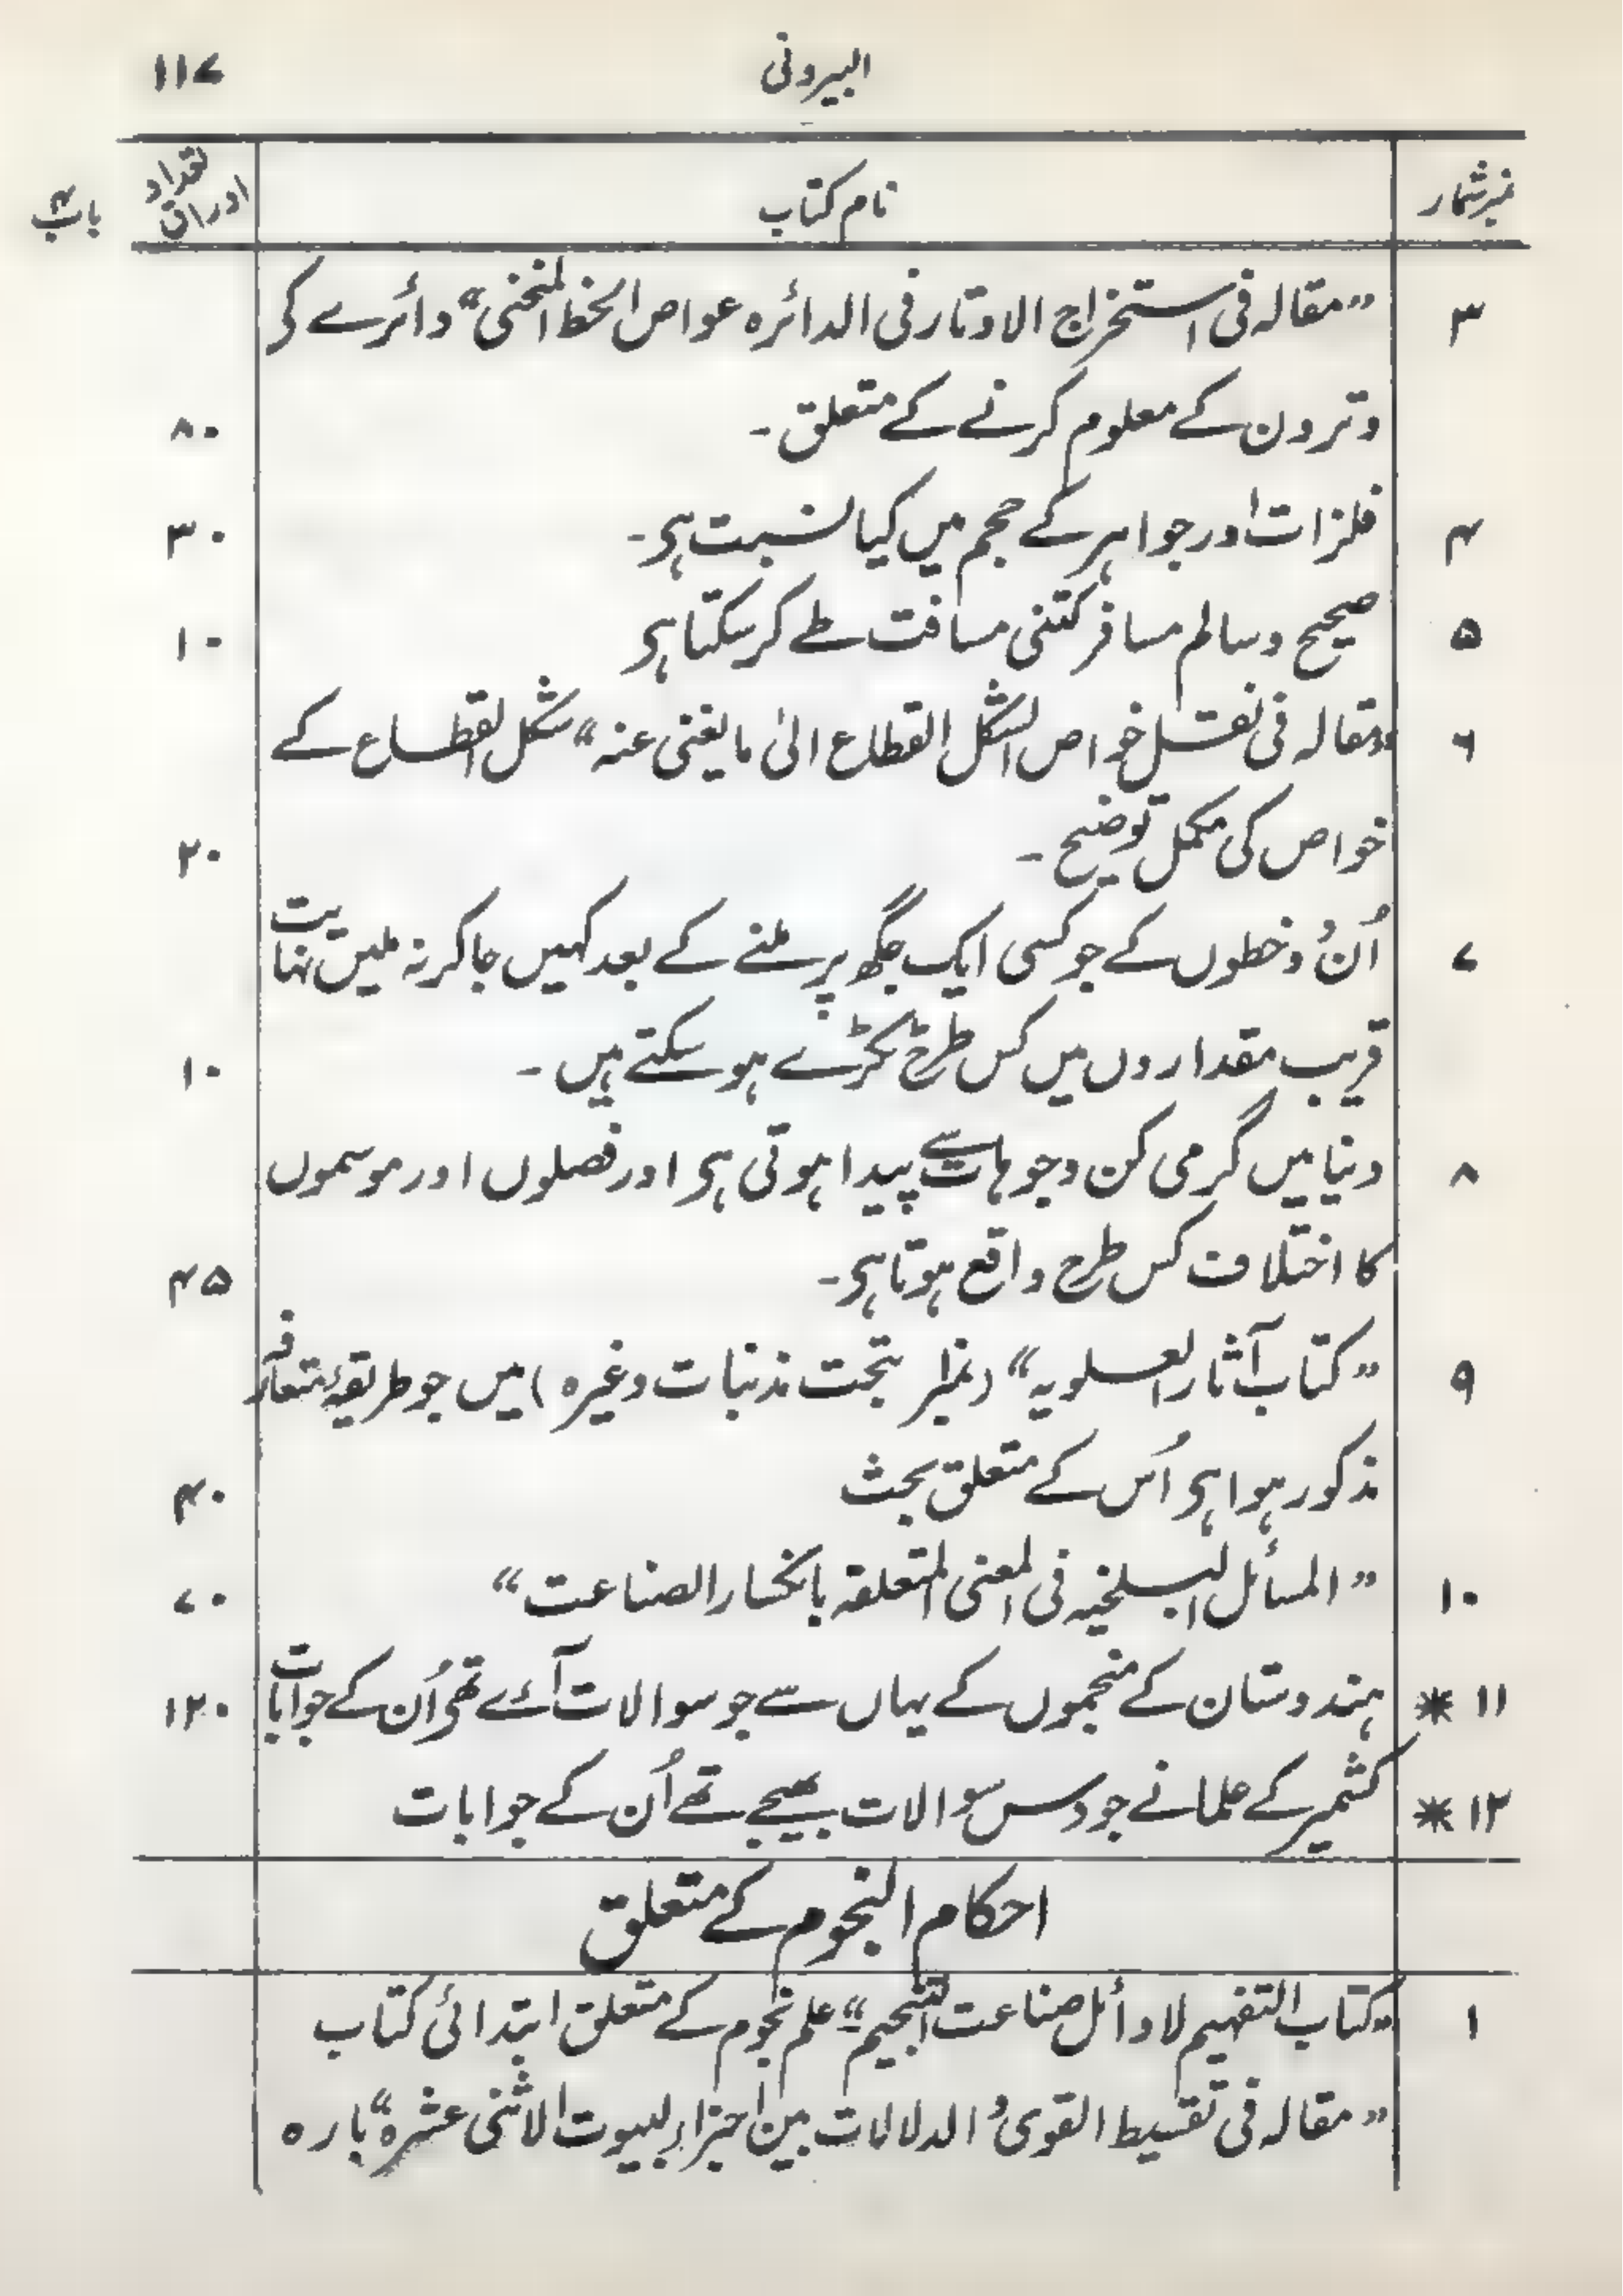 البیرونی ۱۱۷
نمبرشمار نام کتاب تعداد اوراق باب ۴
۳ ”مقالہ فی استخراج الاوتار فی الدائرہ عواص الخط المنحنی“ دائرے کی
وترون کے معلوم کرنے کے متعلق۔ ۸۰
۴ فلزات اور جواہر کے حجم میں کیا نسبت ہی۔ ۳۰
۵ صحیح وسالم مسافر کتنی مسافت طے کرسکتا ہی ۱۰
۶ ”مقالہ فی نقل خواص الشکل القطاع الیٰ مایغنی عنہ“ شکل القطاع کے
خواص کی مکمل توضیح۔ ۲۰
۷ اُن دو خطوں کے جو کسی ایک جگھ پر ملنے کے بعد کہیں جاکر نہ ملیں نہایت
قریب مقداروں میں کس طرح ٹکڑے ہوسکتے ہیں۔ ۱۰
۸ دنیا میں گرمی کن وجوہات سے پیدا ہوتی ہی اور فصلوں اور موسموں
کا اختلاف کس طرح واقع ہوتا ہی۔ ۴۵
۹ ”کتاب آثار العلویہ“ (نمبر تحت مذنبات وغیرہ) میں جو طریقۂ متعارفہ
مذکور ہوا ہی اُس کے متعلق بحث ۴۰
۱۰ ”المسائل البلخیہ فی المعنی المتعلقہ بانحسار الصناعت“ ۷۰
۱۱ * ہندوستان کے منجموں کے یہاں سے جو سوالات آئے تھی اُن کے جوابات ۱۲۰
۱۲ * کشمیر کے علما نے جو دس سوالات بھیجے تھے اُن کے جوابات
احکام النجوم کے متعلق
۱ ”کتاب التفہیم لاوائل صناعت التنجیم“ علم نجوم کے متعلق ابتدائی کتاب
”مقالہ فی تقسیط القویٰ و الدلالات بین اجزاء لبیوت الاثنی عشرہ“ بارہ